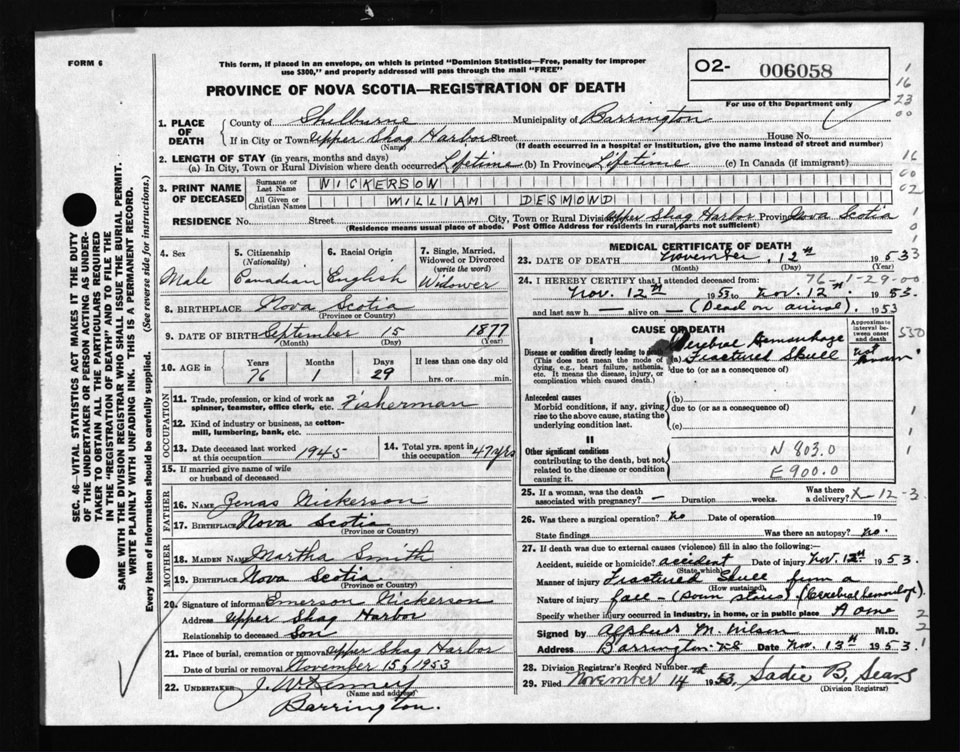 FORM 6
This form, if placed in an envelope, on which is printed "Dominion Statistics—Free, penalty for improper
use $300," and properly addressed will pass through the mail "FREE"
PROVINCE OF NOVA SCOTIA—REGISTRATION OF DEATH
02- 006058
For use of the Department only
1
16
23
00
1. PLACE OF DEATH
County of Shelburne Municipality of Barrington
If in City or Town Upper Shag Harbor Street House No.
(Name) (If death occurred in a hospital or institution, give the name instead of street and number)
2. LENGTH OF STAY (in years, months and days)
(a) In City, Town or Rural Division where death occurred Lifetime (b) In Province Lifetime (c) In Canada (if immigrant)
16
00
02
3. PRINT NAME OF DECEASED
Surname or Last Name NICKERSON
All Given or Christian Names WILLIAM DESMOND
RESIDENCE No. Street City, Town or Rural Division Upper Shag Harbor Province Nova Scotia
(Residence means usual place of abode. Post Office Address for residents in rural parts not sufficient)
4. Sex Male
5. Citizenship (Nationality) Canadian
6. Racial Origin English
7. Single, Married, Widowed or Divorced (write the word) Widower
8. BIRTHPLACE Nova Scotia
(Province or Country)
9. DATE OF BIRTH September 15 1877
(Month) (Day) (Year)
10. AGE in Years 76 Months 1 Days 29 If less than one day old
hrs. or min.
OCCUPATION
11. Trade, profession, or kind of work as spinner, teamster, office clerk, etc. Fisherman
12. Kind of industry or business, as cotton-mill, lumbering, bank, etc.
13. Date deceased last worked at this occupation 1945
14. Total yrs. spent in this occupation 47 yrs
15. If married give name of wife or husband of deceased
FATHER
16. NAME Zenas Nickerson
17. BIRTHPLACE Nova Scotia
(Province or Country)
MOTHER
18. MAIDEN NAME Martha Smith
19. BIRTHPLACE Nova Scotia
(Province or Country)
20. Signature of informant Emerson Nickerson
Address Upper Shag Harbor
Relationship to deceased Son
21. Place of burial, cremation or removal Upper Shag Harbor
Date of burial or removal November 15, 1953
22. UNDERTAKER J. W. Kenney
(Name and address)
Barrington.
MEDICAL CERTIFICATE OF DEATH
23. DATE OF DEATH November 12th 1953
(Month) (Day) (Year)
76-1-29-00
24. I HEREBY CERTIFY that I attended deceased from:
Nov. 12th 1953 to Nov. 12th 1953
and last saw h alive on (Dead on arrival) 1953
CAUSE OF DEATH
Approximate interval between onset and death
I
Disease or condition directly leading to death (a) Cerebral Hemorrhage
Fractured Skull
not known
530
(This does not mean the mode of dying, e.g., heart failure, asthenia, etc. It means the disease, injury, or complication which caused death.)
due to (or as a consequence of)
Antecedent causes
Morbid conditions, if any, giving rise to the above cause, stating the underlying condition last.
(b)
due to (or as a consequence of)
(c)
II
Other significant conditions
contributing to the death, but not related to the disease or condition causing it.
N 803.0
E 900.0
25. If a woman, was the death associated with pregnancy? — Duration weeks. Was there a delivery?
X-12-3
26. Was there a surgical operation? no Date of operation 19
State findings Was there an autopsy? no.
27. If death was due to external causes (violence) fill in also the following:—
Accident, suicide or homicide? accident Date of injury Nov. 12th 1953.
(State which)
Manner of injury Fractured Skull from a
(How sustained)
Nature of injury fall — (Down stairs) (Cerebral hemorrhage).
Specify whether injury occurred in industry, in home, or in public place Home
Signed by Alpheus M Wilson M.D.
Address Barrington N.S. Date Nov. 13th 1953.
28. Division Registrar's Record Number
29. Filed November 14th 1953. Sadie B. Sears
(Division Registrar)
SEC. 46—VITAL STATISTICS ACT MAKES IT THE DUTY
OF THE UNDERTAKER OR PERSON ACTING AS UNDER-
TAKER TO OBTAIN ALL THE PARTICULARS REQUIRED
IN THE "REGISTRATION OF DEATH" AND TO FILE THE
SAME WITH THE DIVISION REGISTRAR WHO SHALL ISSUE THE BURIAL PERMIT.
WRITE PLAINLY WITH UNFADING INK. THIS IS A PERMANENT RECORD.
Every item of information should be carefully supplied. (See reverse side for instructions.)